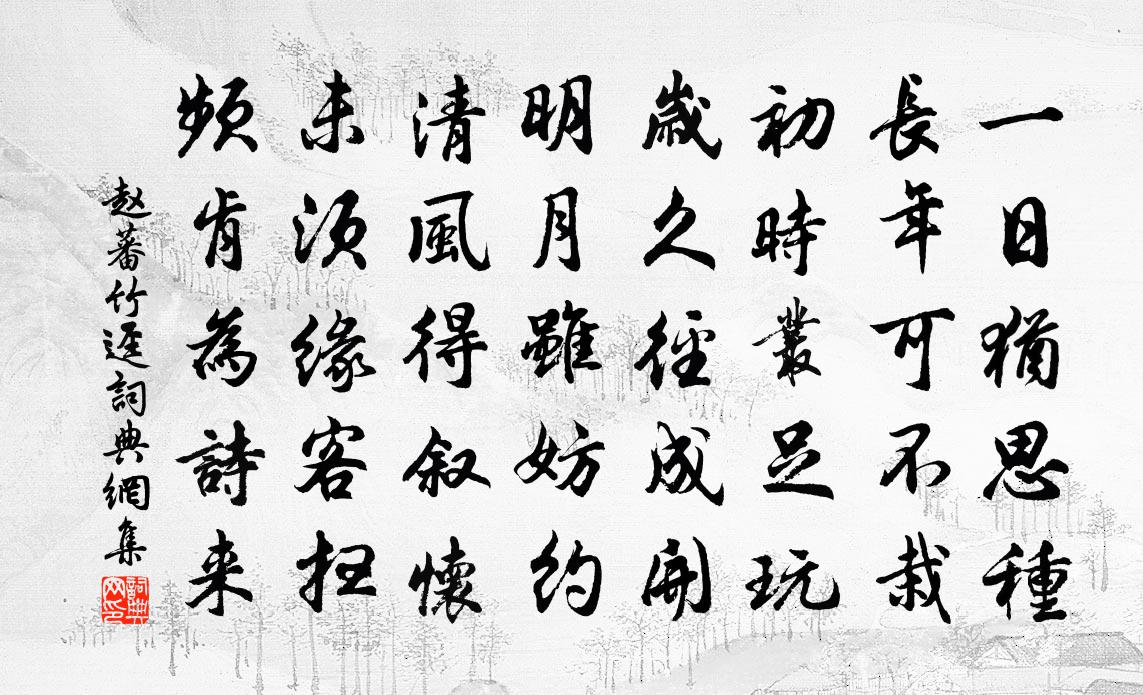 一日猶思種
長年可不栽
初時叢足玩
歲久徑成開
明月雖妨約
清風得叙懷
未須緣客掃
頻肯為詩来
赵蕃竹逕詞典網集
詞典